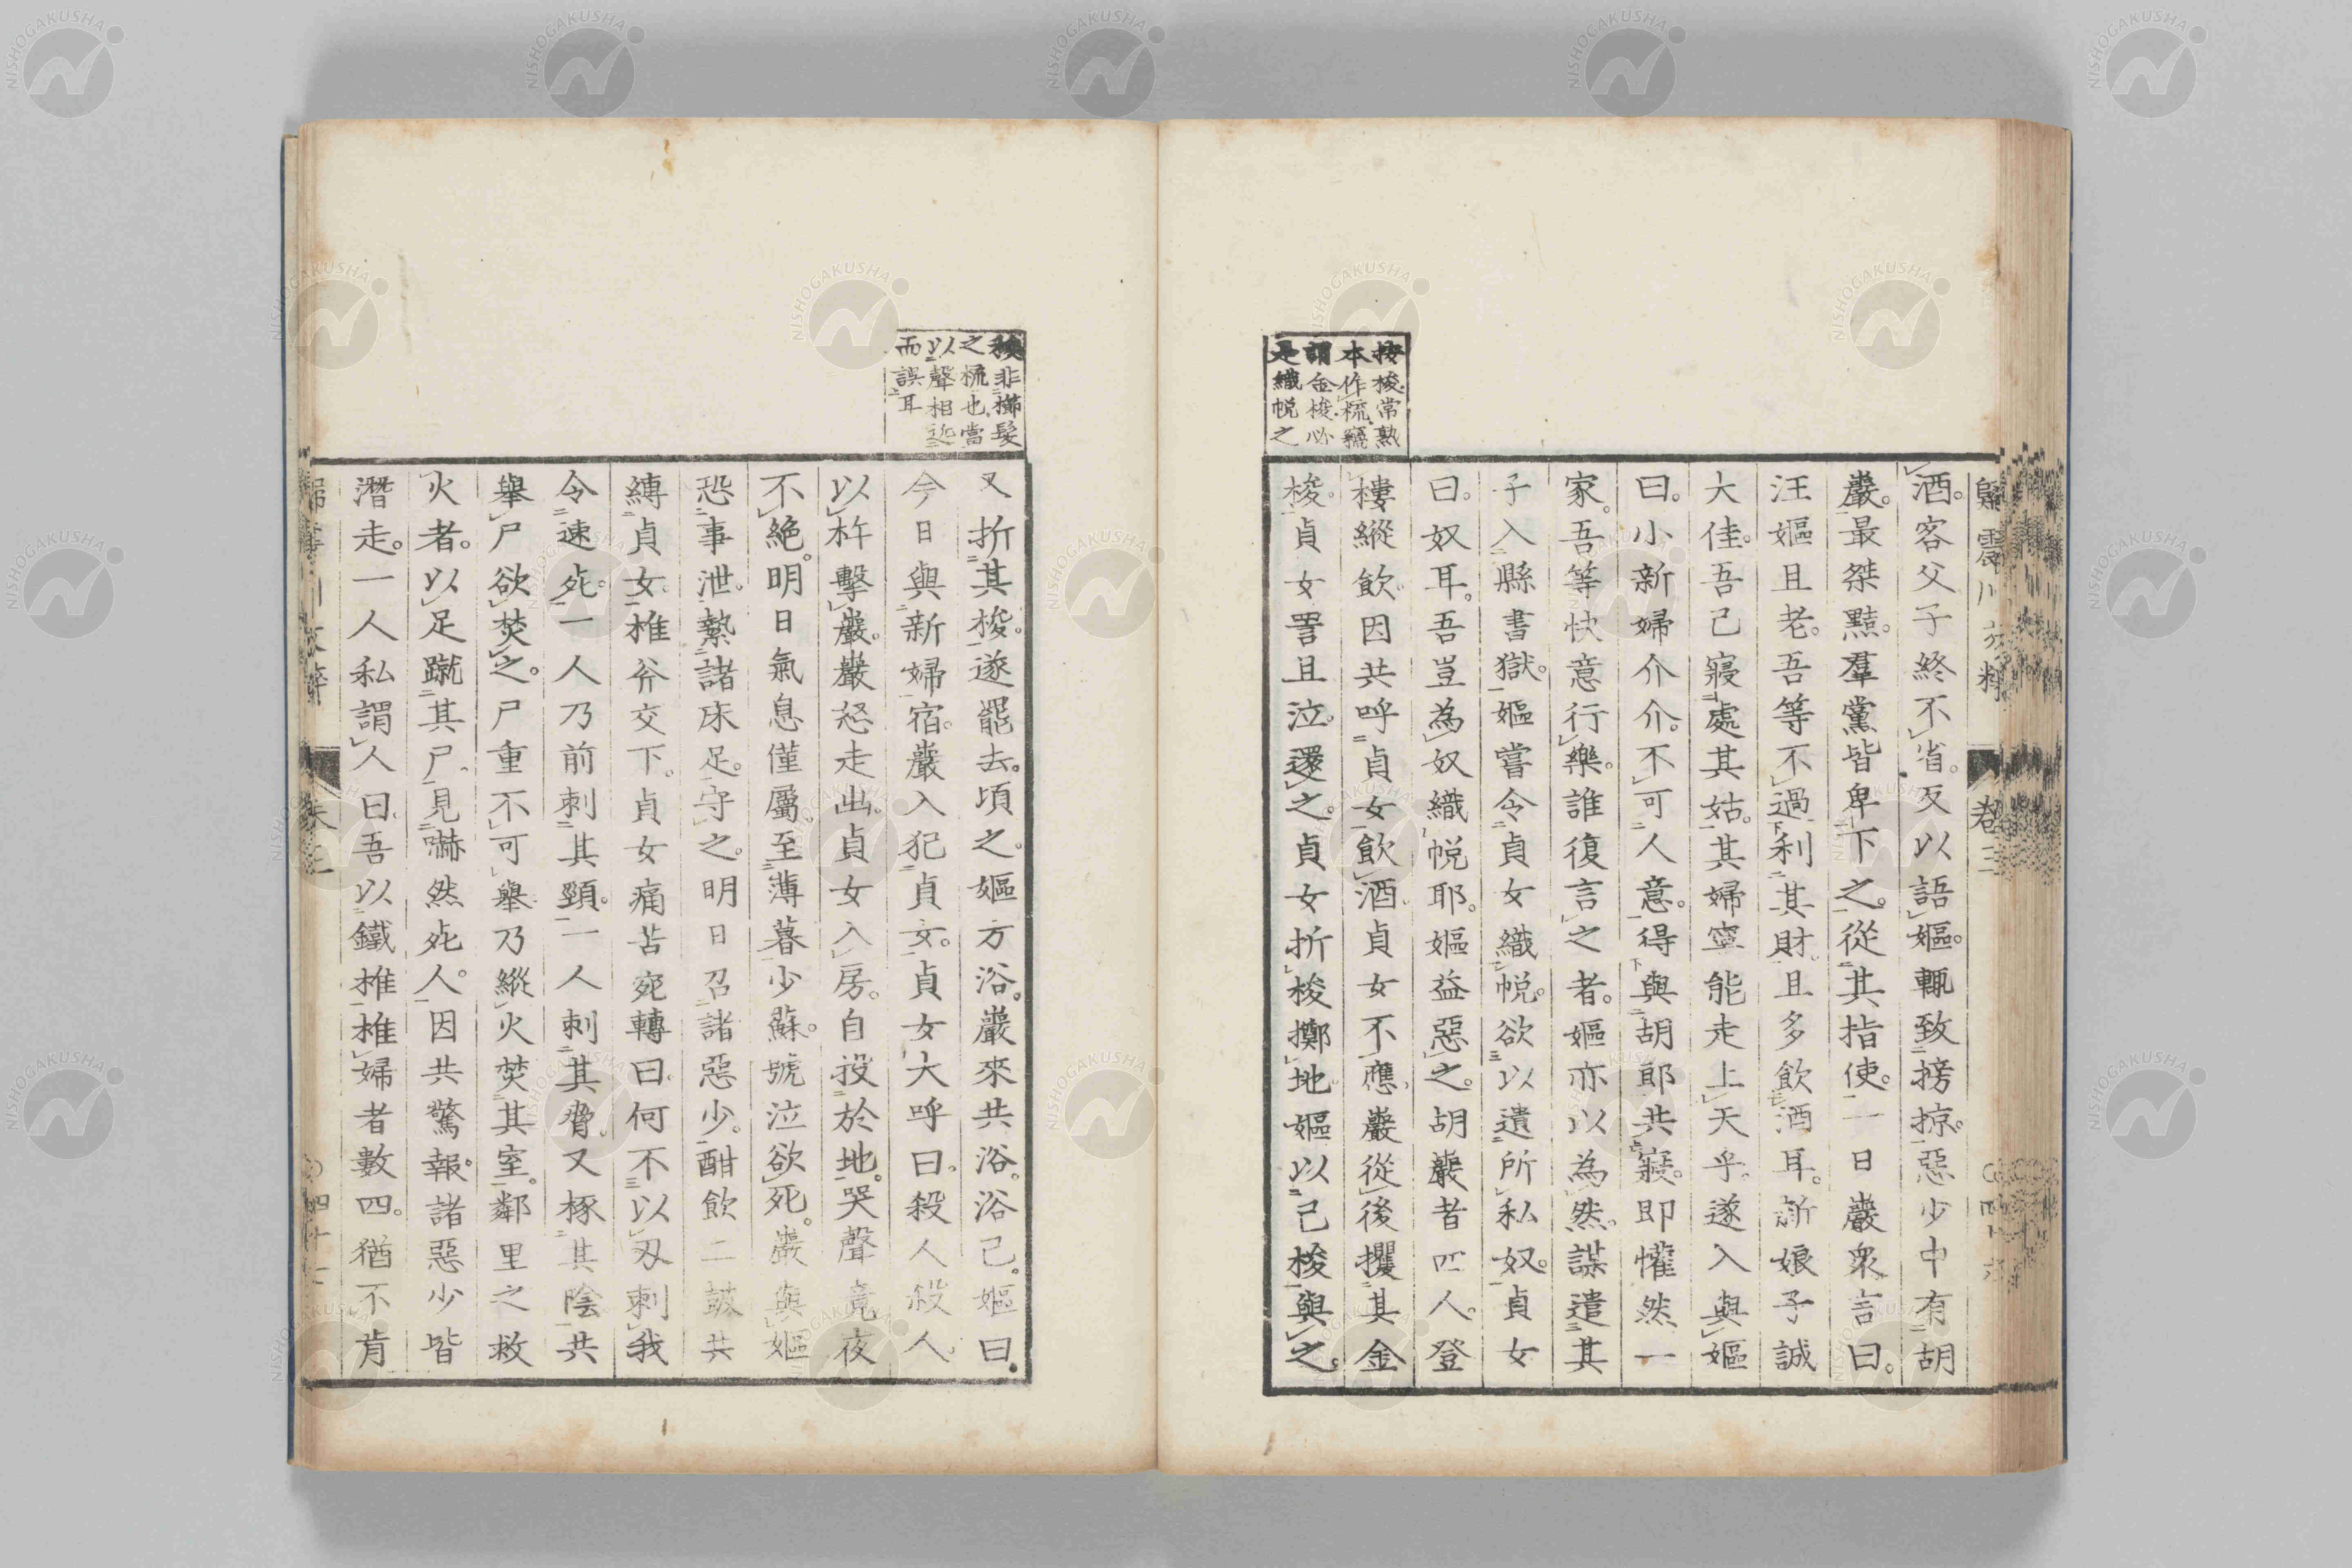 歸震川文粹 卷三
酒。客父子終不省。反以語嫗。輒致搒掠。惡少中有胡
巖。最桀黠。羣黨皆卑下之。從其指使。一日巖衆言曰。
汪嫗且老。吾等不過利其財。且多飲酒耳。新娘子誠
大佳。吾已寢處其姑。其婦寧能走上天乎。遂入與嫗
曰。小新婦介介。不可人意。得與胡郎共寢。即懽然一
家。吾等快意行樂。誰復言之者。嫗亦以為然。謀遣其
子入縣書獄。嫗嘗令貞女織帨。欲以遺所私奴。貞女
曰。奴耳。吾豈為奴織帨耶。嫗益惡之。胡巖者四人。登
樓縱飲。因共呼貞女飲酒。貞女不應。巖從後攫其金
梭。貞女詈且泣。還之。貞女折梭擲地。嫗以己梭與之。
按梭常熟
本作梳竊
謂金梭必
是織帨之
又折其梭。遂罷去。頃之。嫗方浴。巖來共浴。浴已。嫗曰。
今日與新婦宿。巖入犯貞女。貞女大呼曰。殺人殺人。
以杵擊巖。巖怒走出。貞女入房。自投於地。哭聲竟夜
不絕。明日氣息僅屬。至薄暮少蘇。號泣欲死。巖與嫗
恐事泄。縶諸床足。守之。明日召諸惡少。酣飲二鼓共
縛貞女。椎斧交下。貞女痛苦宛轉曰。何不以刃刺我
令速死。一人乃前刺其頸。一人刺其脅。又椓其陰。共
舉尸欲焚之。尸重不可舉。乃縱火焚其室。鄰里之救
火者。以足蹴其尸。見嚇然死人。因共驚報。諸惡少皆
潛走。一人私謂人曰。吾以鐵椎椎婦者數四。猶不肯
梭非櫛髮
之梳也當
以聲相近
而誤耳
歸震川文粹 卷三 ○四十一